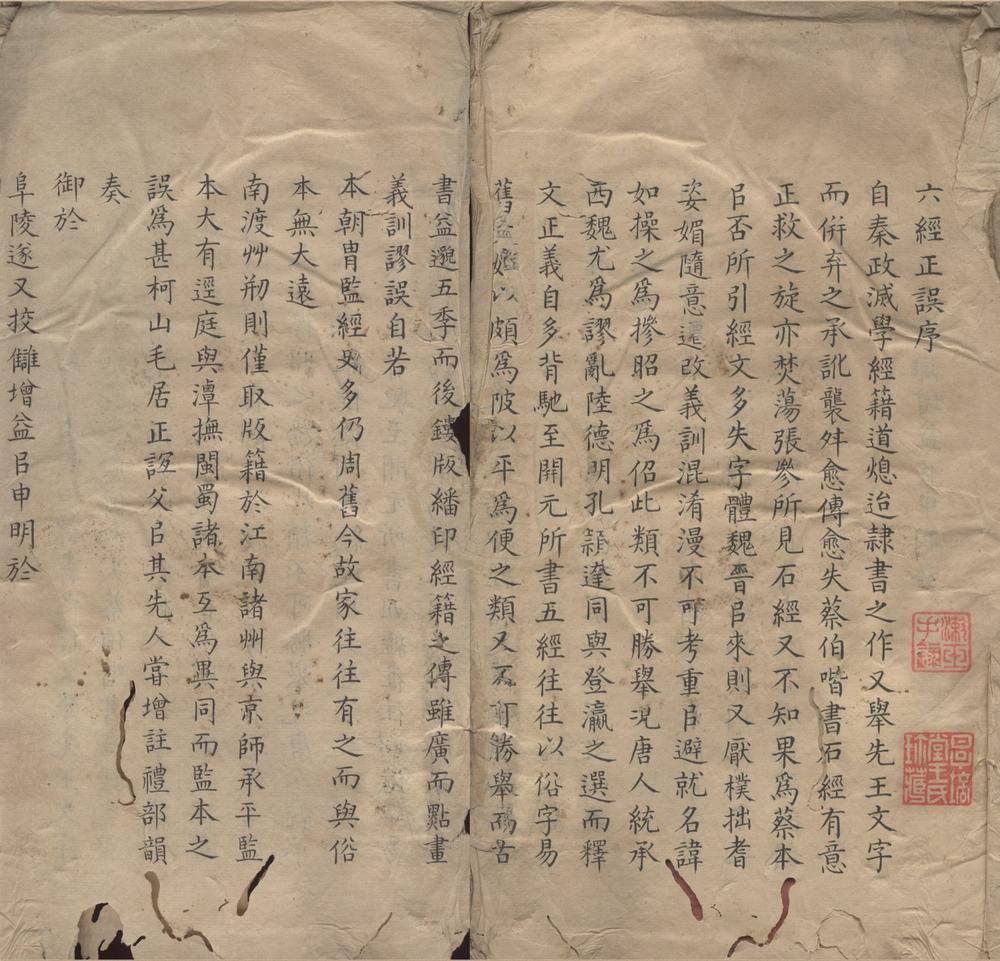 六經正誤序
自秦政滅學經籍道熄迨隷書之作又舉先王文字
而倂弃之承訛襲舛愈傳愈失蔡伯喈書石經有意
正救之旋亦焚蕩張參所見石經又不知果爲蔡本
㠯否所引經文多失字體魏晉㠯來則又厭樸拙耆
姿媚隨意遷改義訓混淆漫不可考重㠯避就名諱
如操之爲摻昭之爲佋此類不可勝舉況唐人統承
西魏尤爲謬亂陸德明孔穎達同與登瀛之選而釋
文正義自多背馳至開元所書五經往往以俗字易
舊以頗爲陂以平爲便之類又不可勝舉古
書益邈五季而後鏤版繙印經籍之傳雖廣而點畫
義訓謬誤自若
本朝胄監經史多仍周舊今故家往往有之而與俗
本無大遠
南渡艸刱則僅取版籍於江南諸州與京師承平監
本大有逕庭與潭撫閩蜀諸本互爲異同而監本之
誤爲甚柯山毛居正誼父㠯其先人嘗增註禮部韻
奏
御於
阜陵遂又挍讎增益㠯申明於